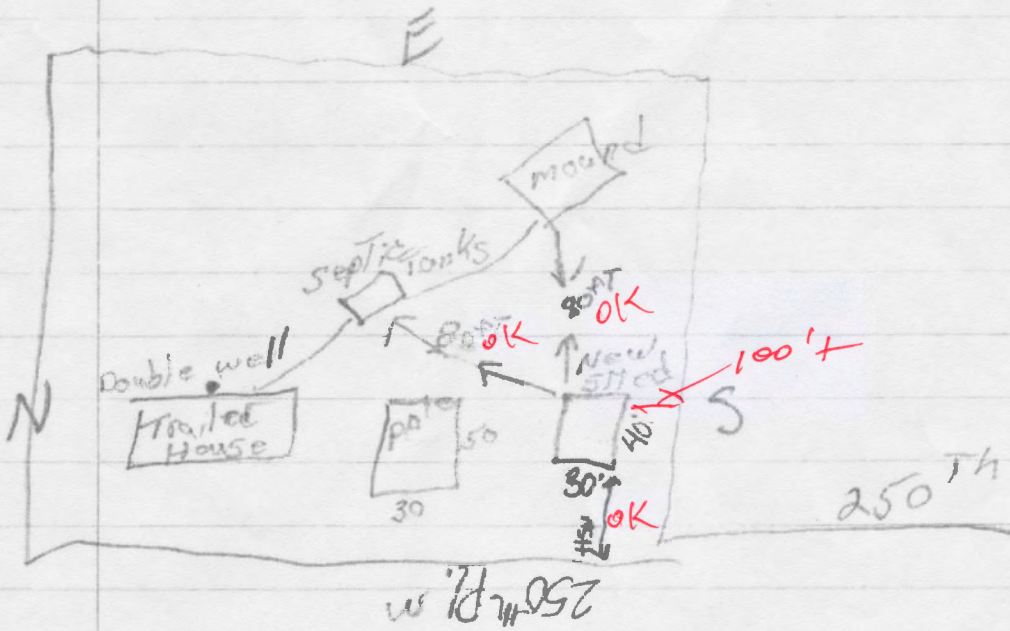 E
mound
Septic Tanks
80FT OK
80FT OK
New
Shed
100'+
Double well
N
Trailer
House
pole
50
30
40'
30'
S
OK
250Th
250th Pl.
W